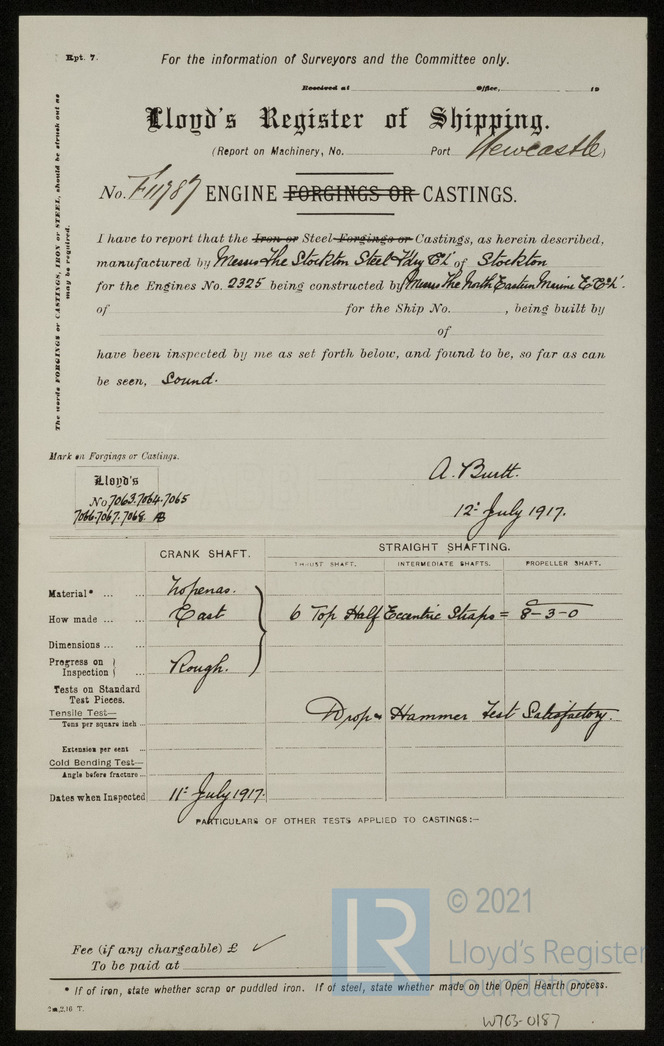 Rpt. 7.
For the information of Surveyors and the Committee only.
Received at Office, 19
Lloyd's Register of Shipping.
(Report on Machinery, No. Port Newcastle)
No. F11987 ENGINE FORGINGS OR CASTINGS.
The words FORGINGS or CASTINGS, IRON or STEEL, should be struck out as
may be required.
I have to report that the Iron or Steel Forgings or Castings, as herein described,
manufactured by Messrs The Stockton Steel Fdry Co Ld of Stockton
for the Engines No. 2325 being constructed by Messrs The North Eastern Marine E. Co Ld.
of for the Ship No. , being built by
of
have been inspected by me as set forth below, and found to be, so far as can
be seen, Sound.
Mark on Forgings or Castings.
Lloyd's
No 7063.7064.7065
7066.7067.7068. AB
A. Burtt.
12: July 1917.
CRANK SHAFT. STRAIGHT SHAFTING.
THRUST SHAFT. INTERMEDIATE SHAFTS. PROPELLER SHAFT.
Material* ... ... Tropenas.
How made ... ... Cast 6 Top Half Eccentric Straps = 8-3-0
Dimensions ... ...
Progress on
Inspection ... Rough.
Tests on Standard
Test Pieces.
Tensile Test—
Tons per square inch ... Drop & Hammer Test Satisfactory.
Extension per cent ...
Cold Bending Test—
Angle before fracture ...
Dates when Inspected 11: July 1917.
PARTICULARS OF OTHER TESTS APPLIED TO CASTINGS:—
Fee (if any chargeable) £
To be paid at
* If of iron, state whether scrap or puddled iron. If of steel, state whether made on the Open Hearth process.
2m,2,16 T.
LR
© 2021
Lloyd's Register
Foundation
W763-0187